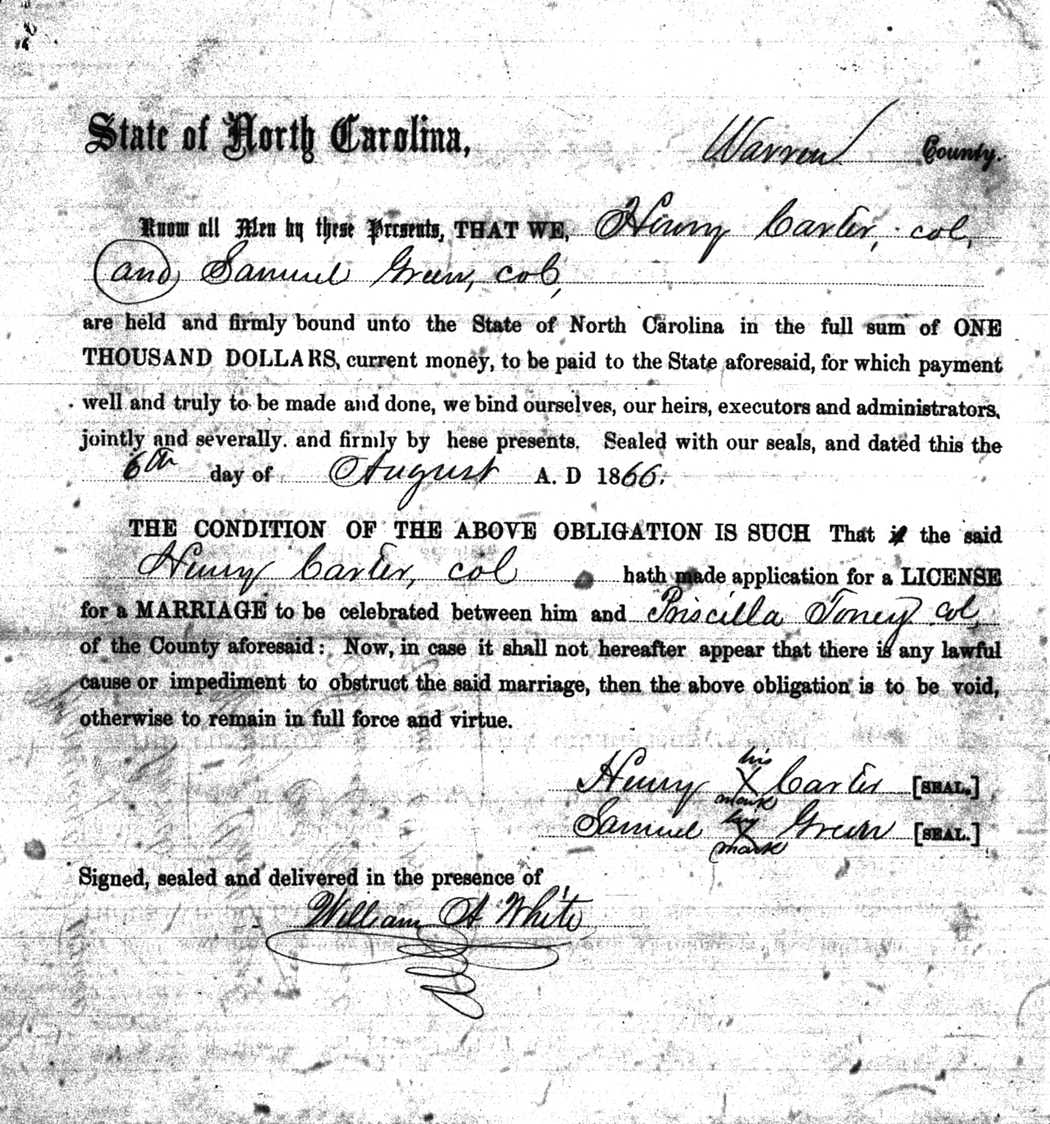 State of North Carolina, Warren County.
Know all Men by these Presents, THAT WE, Henry Carter, col,
and Samuel Green, col,
are held and firmly bound unto the State of North Carolina in the full sum of ONE
THOUSAND DOLLARS, current money, to be paid to the State aforesaid, for which payment
well and truly to be made and done, we bind ourselves, our heirs, executors and administrators,
jointly and severally. and firmly by hese presents. Sealed with our seals, and dated this the
6th day of August A. D 1866.
THE CONDITION OF THE ABOVE OBLIGATION IS SUCH That if the said
Henry Carter, col hath made application for a LICENSE
for a MARRIAGE to be celebrated between him and Priscilla Toney col,
of the County aforesaid: Now, in case it shall not hereafter appear that there is any lawful
cause or impediment to obstruct the said marriage, then the above obligation is to be void,
otherwise to remain in full force and virtue.
his
Henry X Carter [SEAL.]
mark
his
Samuel X Green [SEAL.]
mark
Signed, sealed and delivered in the presence of
William A White